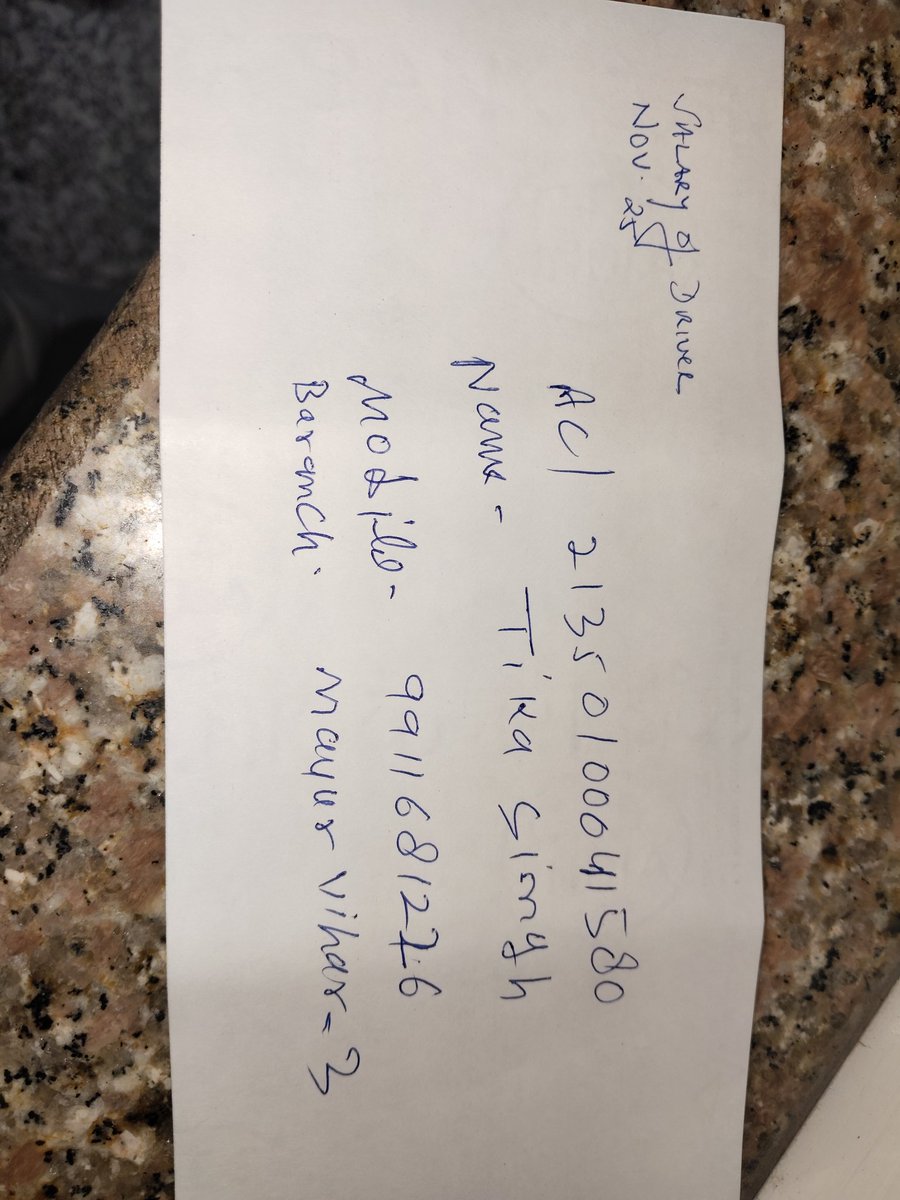 SALARY of DRIVER
NOV. 25
AC/ 21350100041580
Name - Tika Singh
Mobile - 9911681276
Baranch. Mayur Vihar = 3